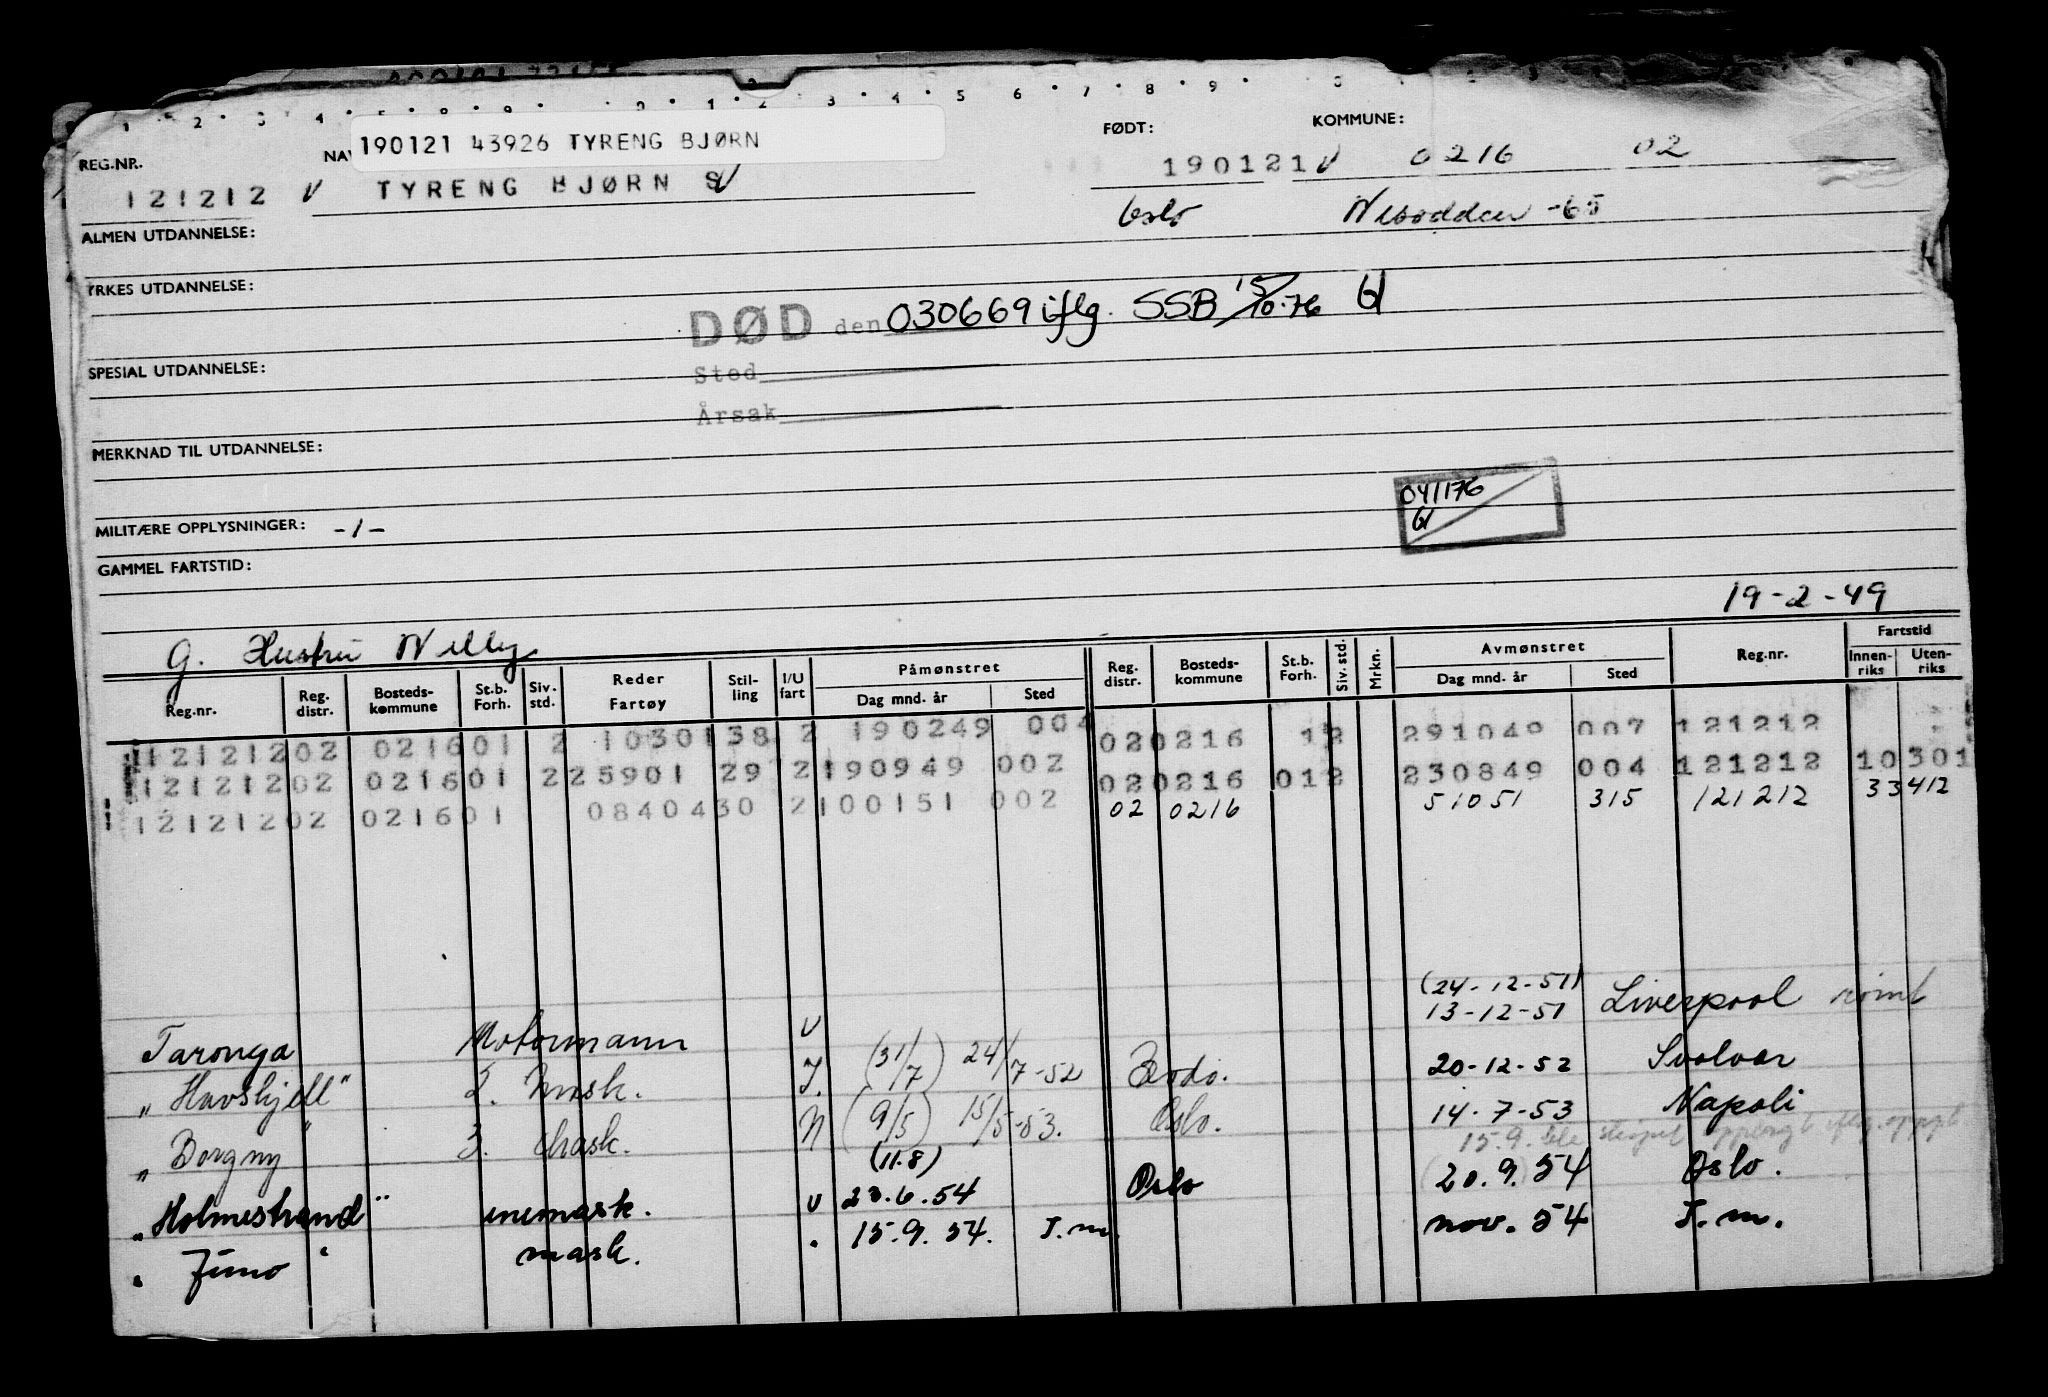 1 2 3 4 5 8 9 0 1 2 3 4 5 6 7 8 9 0
190121 43926 TYRENG BJØRN
REG.NR. NAV FØDT: KOMMUNE:
121212 V TYRENG BJØRN S V 190121 V 0216 02
Oslo Nesodden -65
ALMEN UTDANNELSE:
YRKES UTDANNELSE:
DØD den 030669 iflg. SSB 15/10-76
Sted
SPESIAL UTDANNELSE:
Årsak
MERKNAD TIL UTDANNELSE:
041176
MILITÆRE OPPLYSNINGER: -/-
GAMMEL FARTSTID:
19-2-49
G. Hustru Nelly
Reg.nr. Reg. distr. Bosteds- kommune St.b. Forh. Siv. std. Reder Fartøy Stil- ling I/U fart Påmønstret Dag mnd. år Sted Reg. distr. Bosteds- kommune St.b. Forh. Siv. std. Mrkn. Avmønstret Dag mnd. år Sted Reg.nr. Fartstid Innen- riks Uten- riks
121212 02 0216 01 2 10301 38 2 190249 004 02 0216 12 291049 007 121212
121212 02 0216 01 2 25901 29 2 190949 002 02 0216 01 2 230849 004 121212 10 301
121212 02 0216 01 08404 30 2 100151 002 02 0216 51051 315 121212 33 412
(24-12-51)
Taronga Motormann U 13-12-51 Liverpool rømt
"Havskjell" 2. mask. I. (31/7) 24/7-52 Bodø. 20-12-52 Svolvær
"Borgny" 3. mask. N (9/5) 15/5-53. Oslo. 14-7-53 Napoli
15.9. ble skipet opplagt iflg. oppg.
(11.8)
"Holmestrand" enemask. U 23.6.54 Oslo 20.9.54 Oslo.
" Juno " mask. . 15.9.54. T.m. nov. 54 T.m.